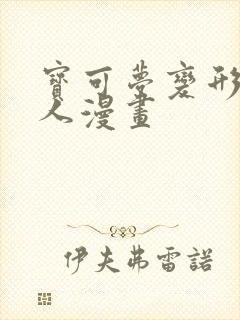 寶可夢變形
人漫畫
伊夫弗雷諾